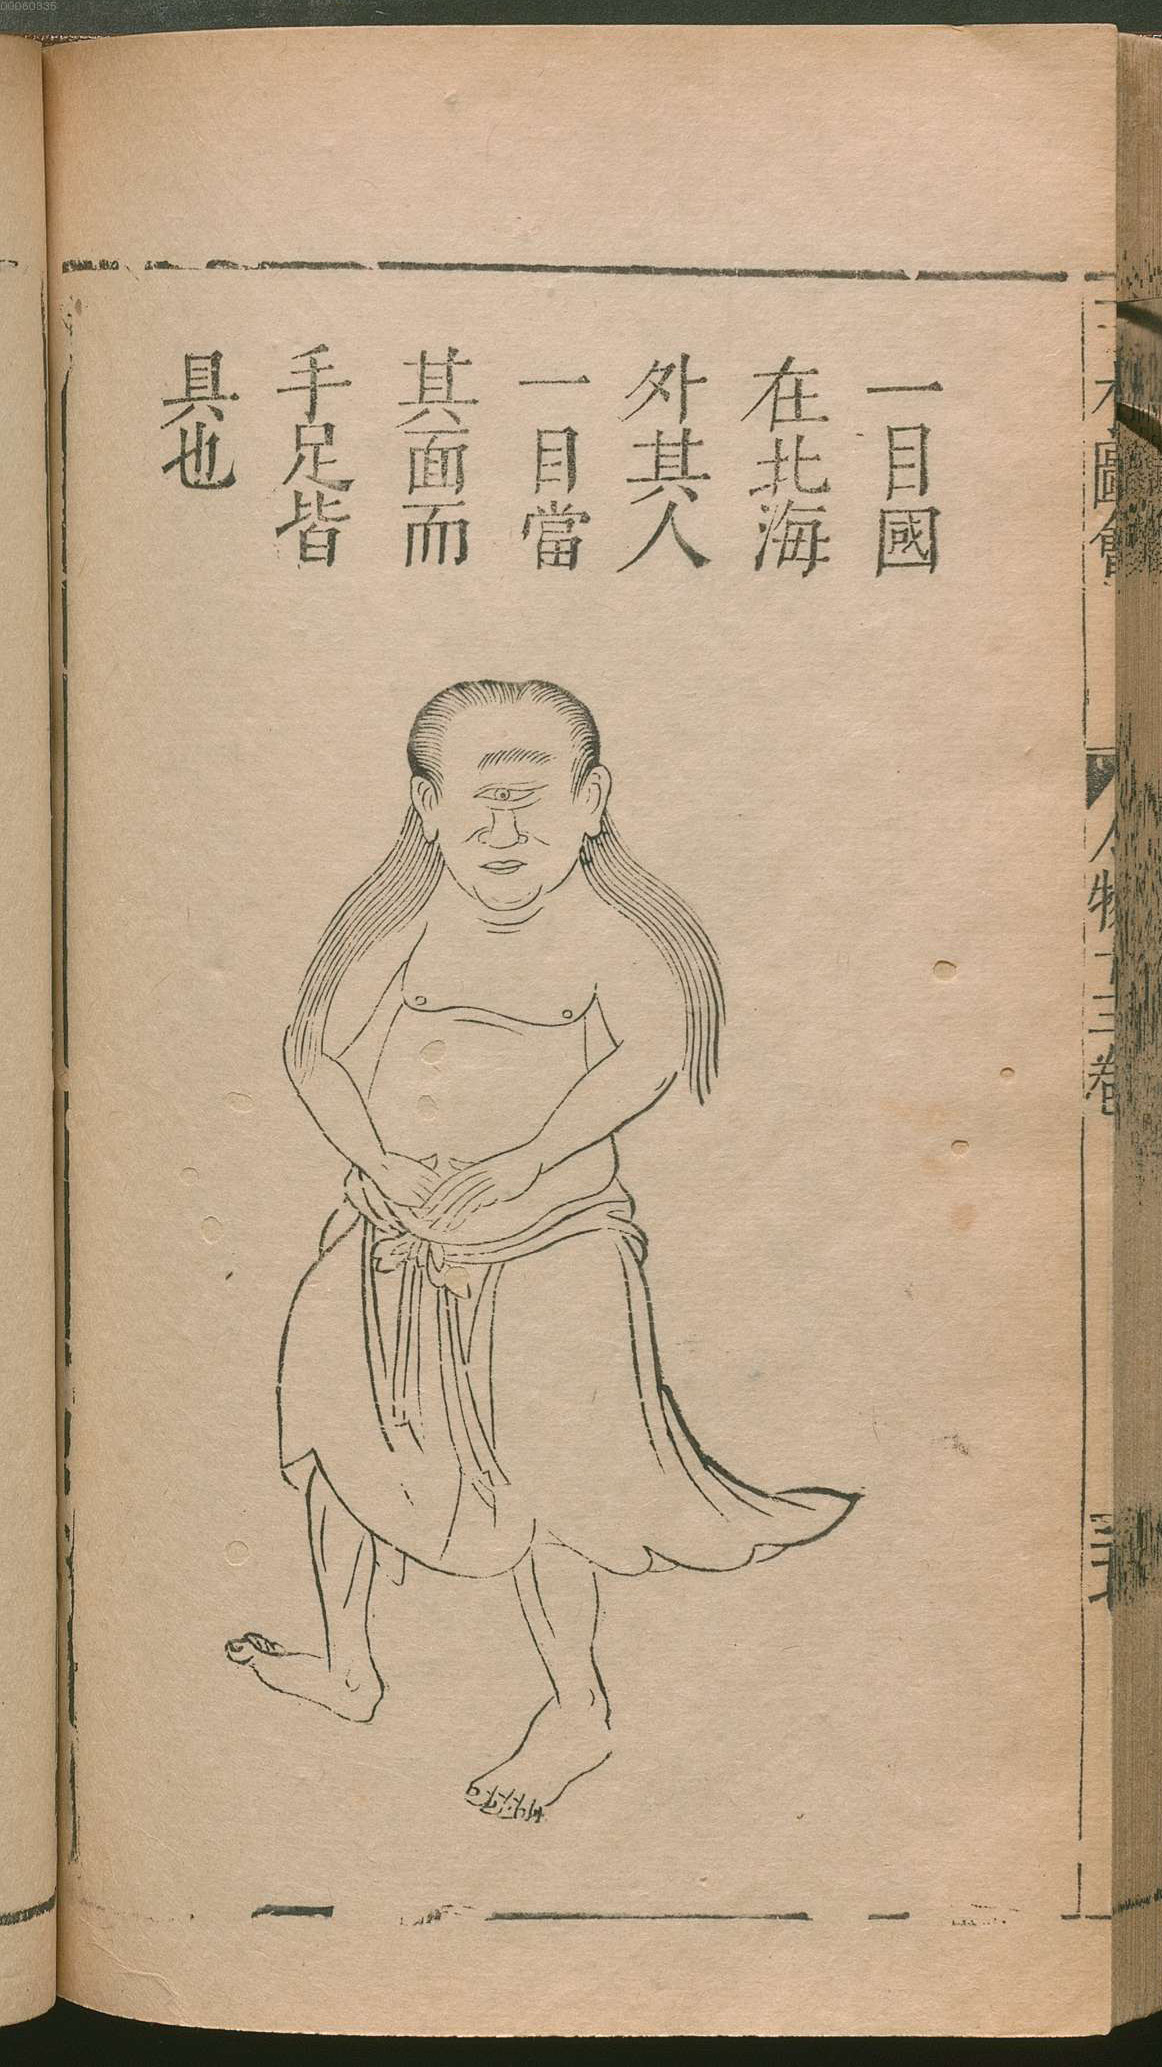 00060335
一目國
在北海
外其人
一目當
其面而
手足皆
具也
圖會
人物十三卷